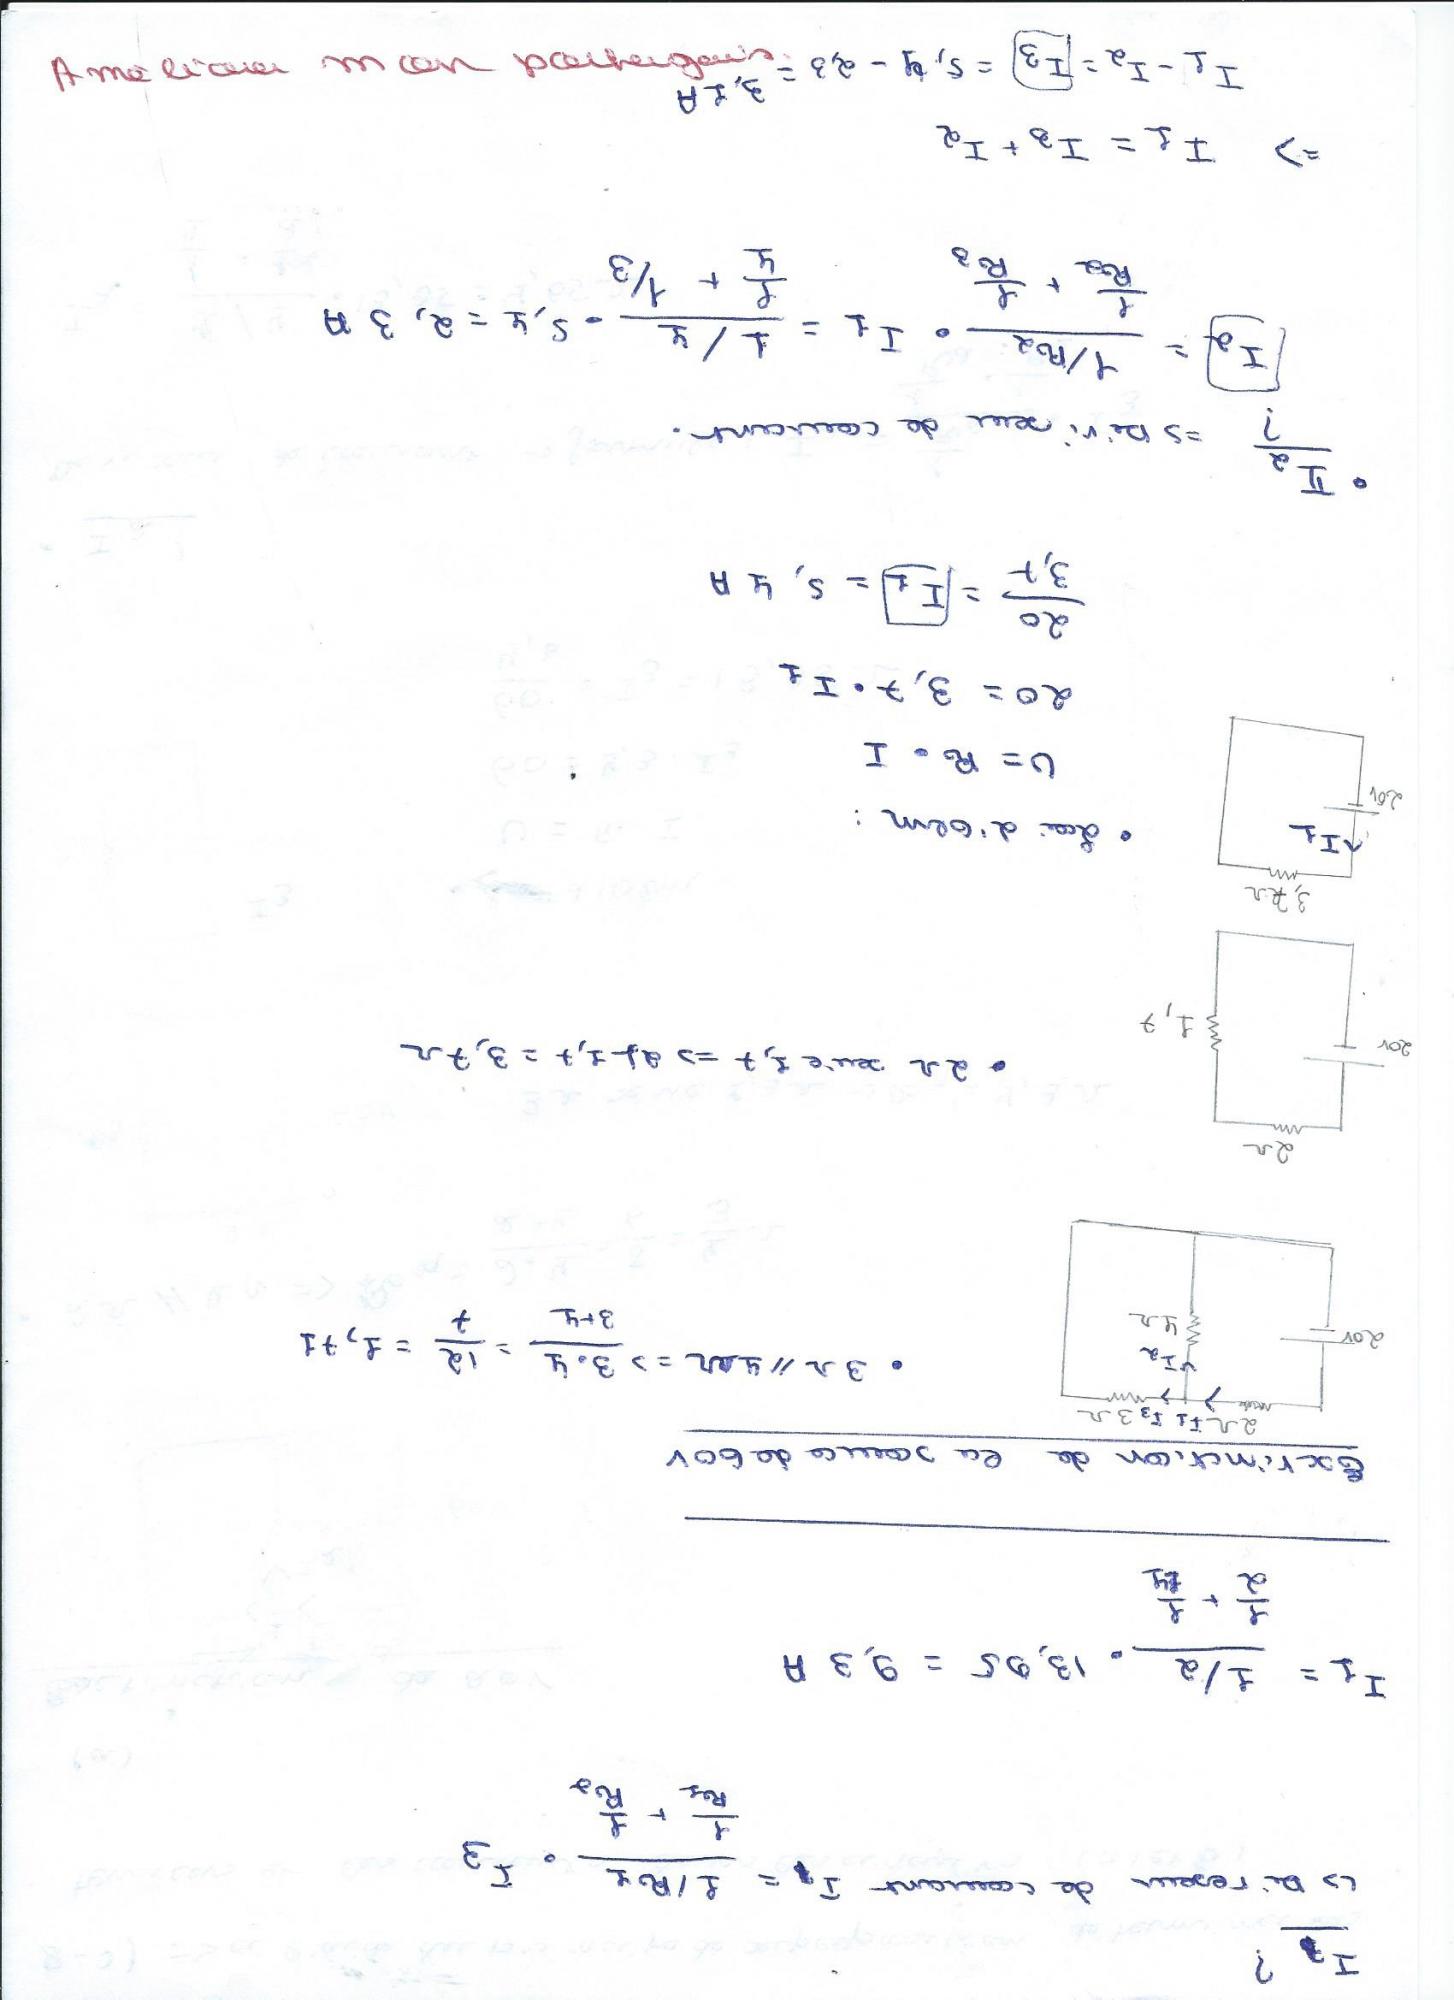 I1 ?
↳ Diviseur de courant I1 = (1/R1) / (1/R1 + 1/R2) • I3
I1 = (1/2) / (1/2 + 1/4) • 13,95 = 9,3 A
Extinction de la source de 60V
2Ω I1 I3 3Ω
I2
4Ω
20V
• 3Ω // 4Ω => 3•4 / 3+4 = 12/7 = 1,71
2Ω
20V
1,7
• 2Ω serie 1,7 => 2+1,7 = 3,7Ω
3,7Ω
I1
20V
• Loi d'Ohm :
U = R • I
20 = 3,7 • I1
20/3,7 = I1 = 5,4 A
• I2 ? => Diviseur de courant.
I2 = (1/R2) / (1/R2 + 1/R3) • I1 = (1/4) / (1/4 + 1/3) • 5,4 = 2,3 A
=> I1 = I3 + I2
I1 - I2 = I3 = 5,4 - 2,3 = 3,1 A
Améliorer mon portugais.